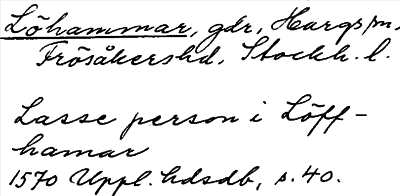 Löhammar, gdr, Hargs sn,
Frösåkershd, Stockh. l.
Lasse person i Löff-
hamar
1570 Uppl. hdsdb, s. 40.